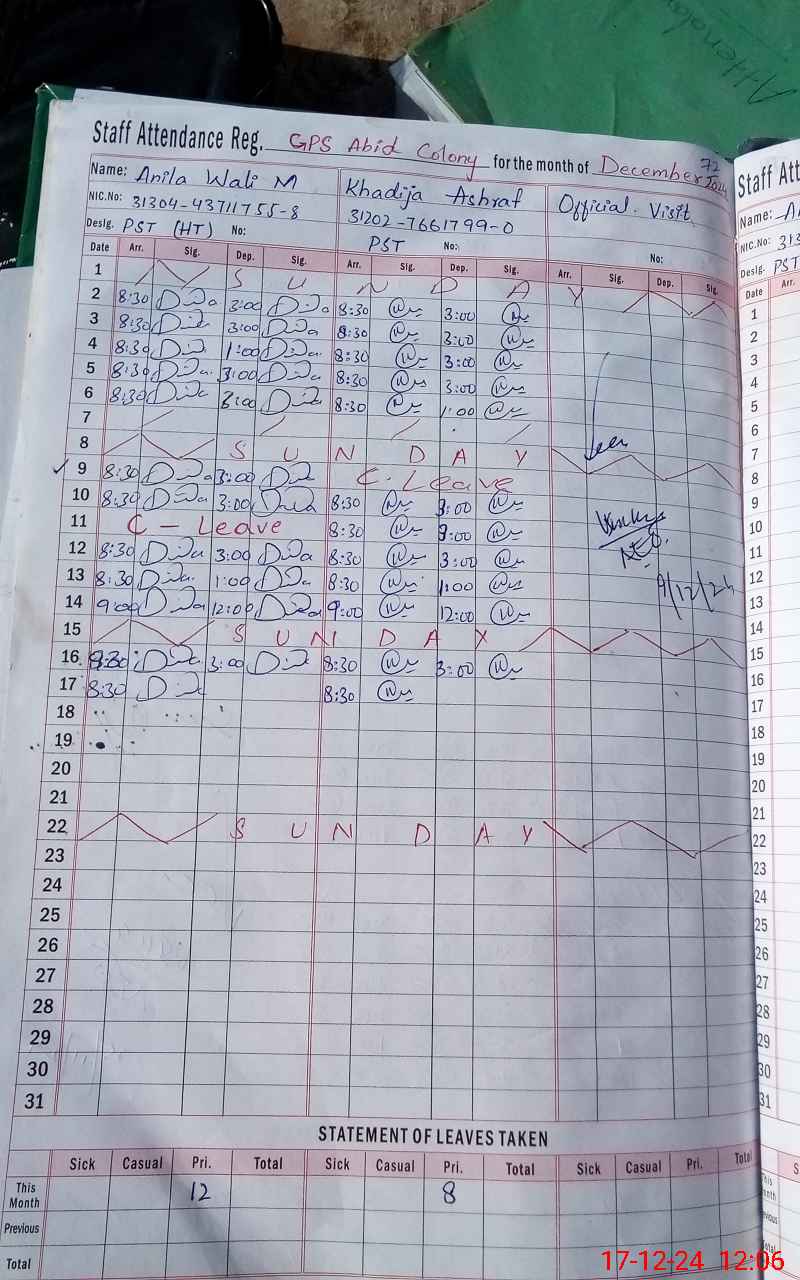 Staff Attendance Reg. GPS Abid Colony for the month of December 2024
72
Name: Anila Wali M Khadija Ashraf Official Visit
NIC.No: 31304-4371755-8 31202-7661799-0
Desig. PST (HT) No: PST No: No:
Date Arr. Sig. Dep. Sig. Arr. Sig. Dep. Sig. Arr. Sig. Dep. Sig.
1 S U N D A Y
2 8:30 3:00 8:30 3:00
3 8:30 3:00 8:30 3:00
4 8:30 1:00 8:30 3:00
5 8:30 3:00 8:30 3:00
6 8:30 3:00 8:30 1:00
7
8 S U N D A Y
9 8:30 3:00 C. Leave
10 8:30 3:00 8:30 3:00
11 C - Leave 8:30 3:00
12 8:30 3:00 8:30 3:00
13 8:30 1:00 8:30 1:00
9/12/24
14 9:00 12:00 9:00 12:00
15 S U N D A Y
16 8:30 3:00 8:30 3:00
17 8:30 8:30
18
19
20
21
22 S U N D A Y
23
24
25
26
27
28
29
30
31
STATEMENT OF LEAVES TAKEN
Sick Casual Pri. Total Sick Casual Pri. Total Sick Casual Pri. Total
This Month 12 8
Previous
Total
Staff Att
Name:
NIC.No: 313
Desig. PST
Date Arr.
1
2
3
4
5
6
7
8
9
10
11
12
13
14
15
16
17
18
19
20
21
22
23
24
25
26
27
28
29
30
31
17-12-24 12:06